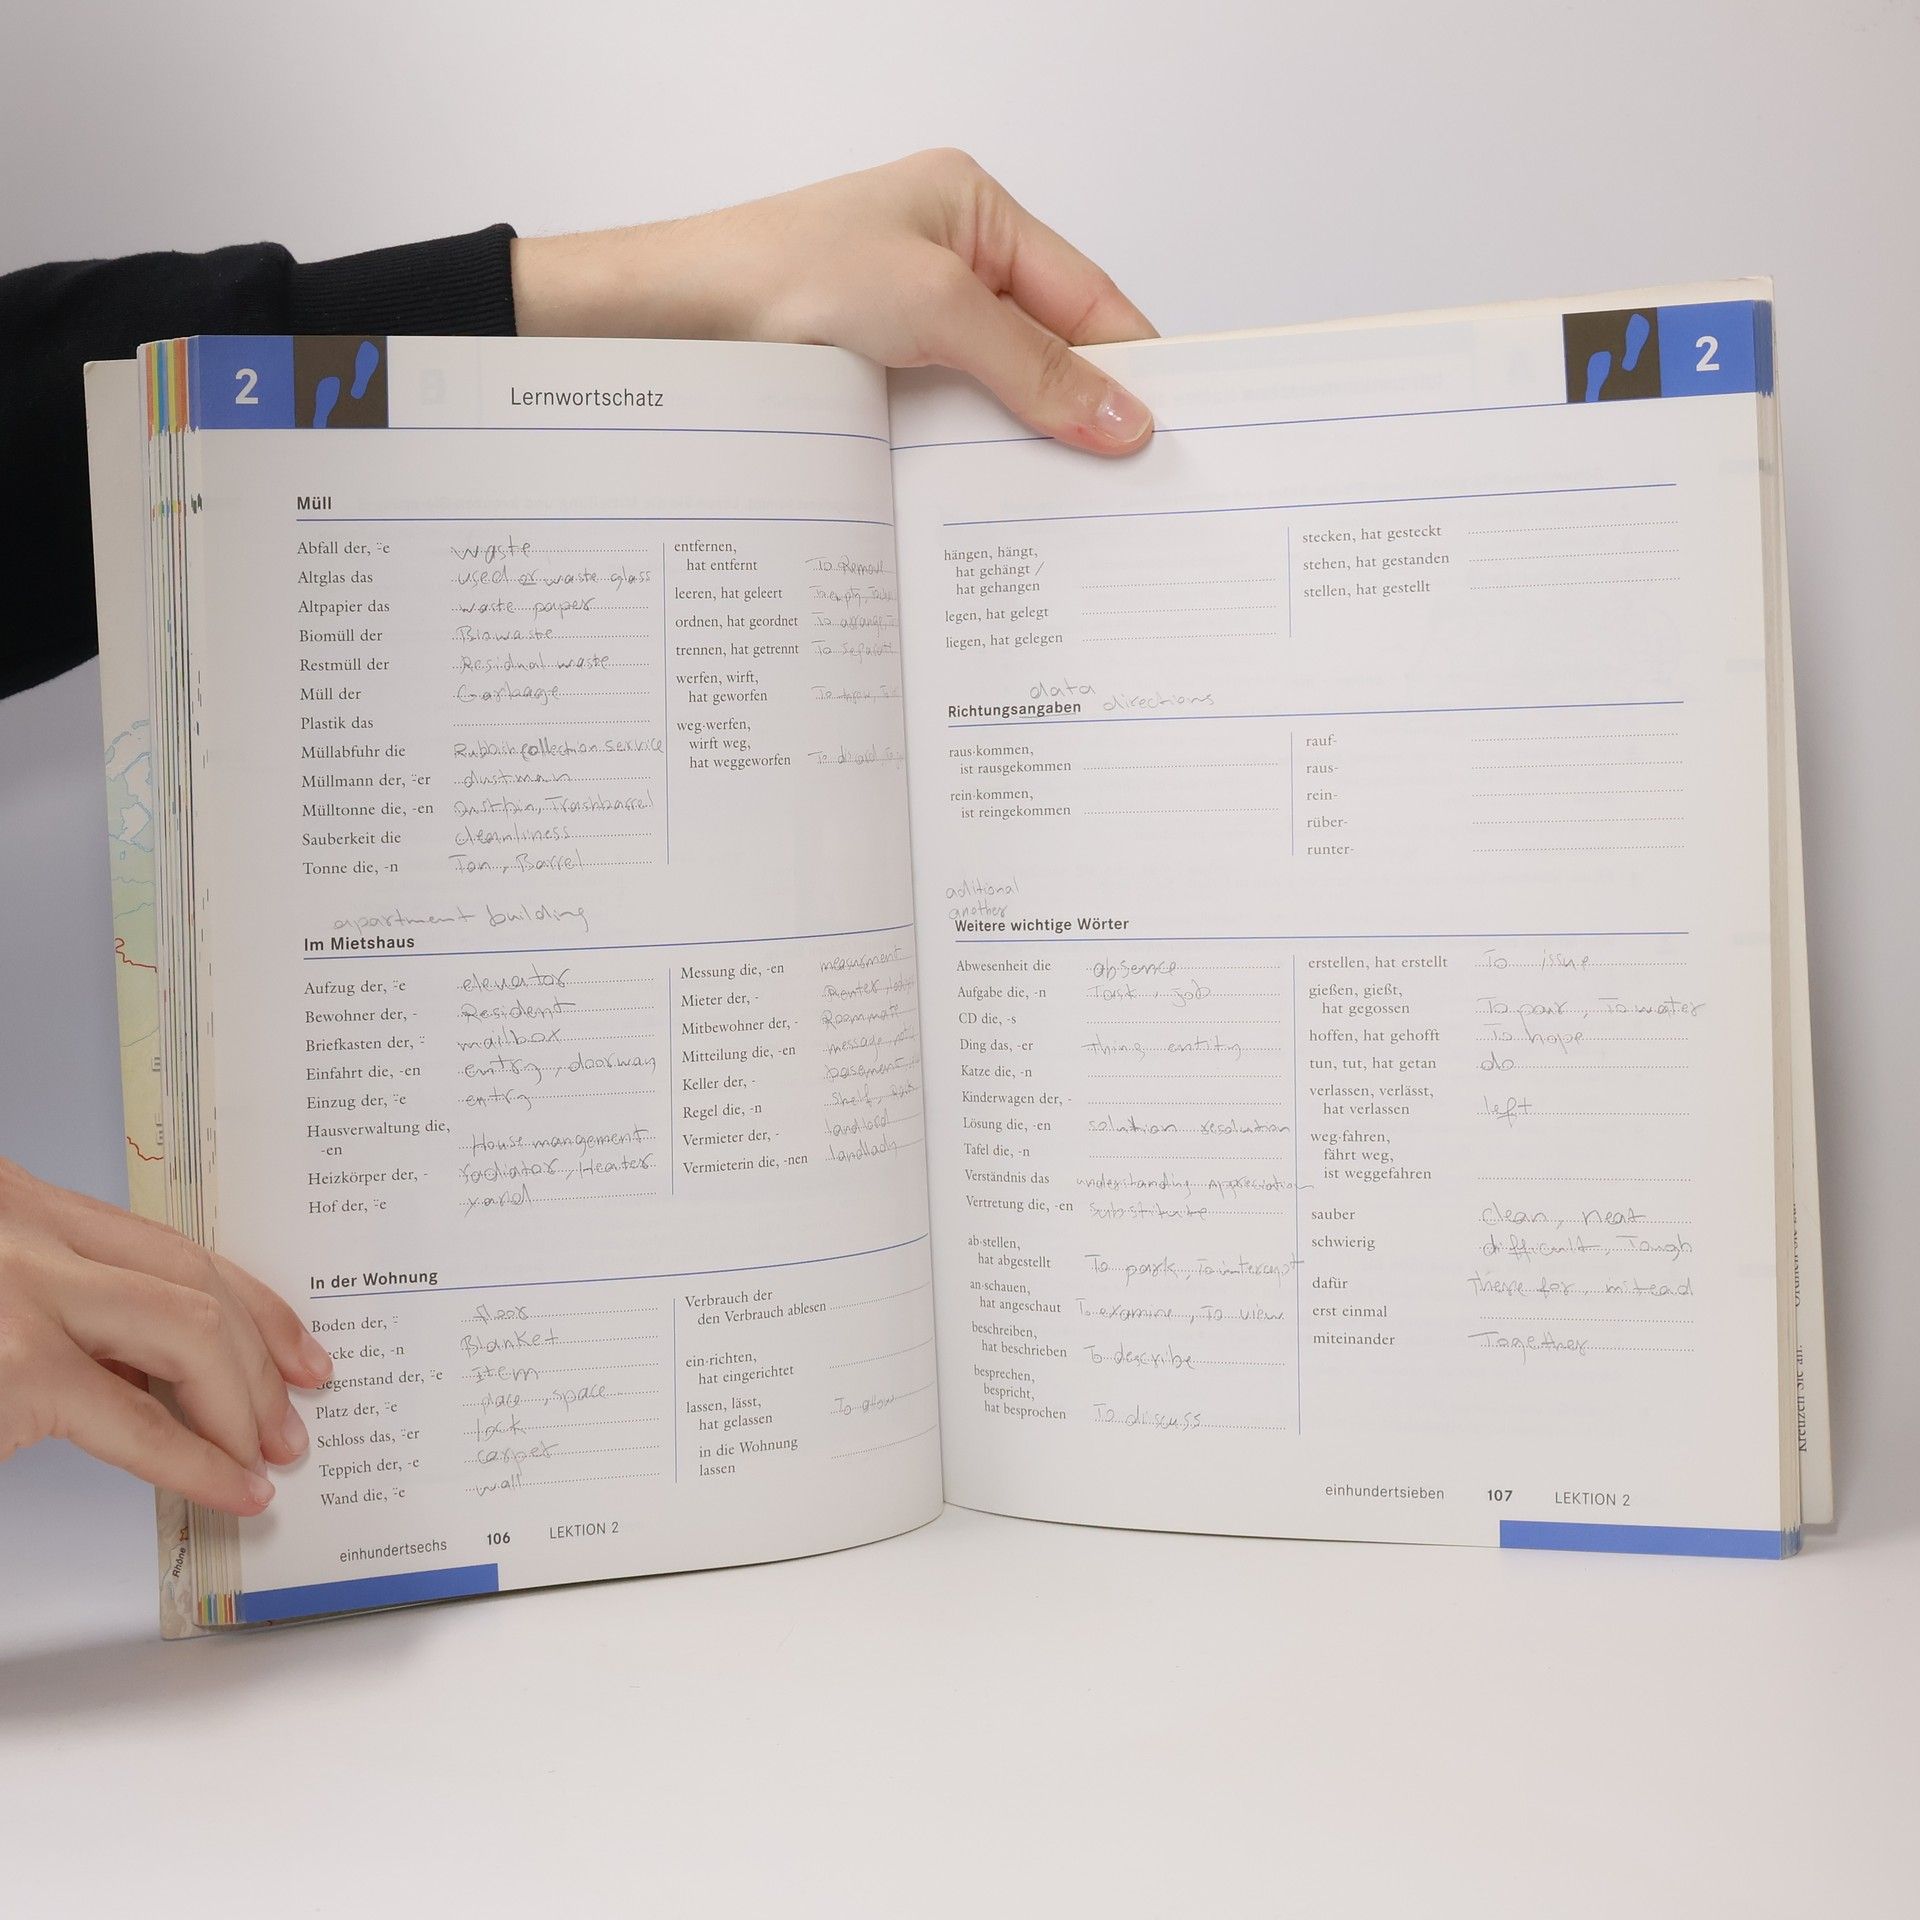 2
Lernwortschatz
Müll
Abfall der, ⸚e waste
Altglas das used or waste glass
Altpapier das waste paper
Biomüll der Biowaste
Restmüll der Residual waste
Müll der Garbage
Plastik das
Müllabfuhr die Rubbish collection service
Müllmann der, ⸚er dustman
Mülltonne die, -en Dustbin, Trashbarrel
Sauberkeit die cleanliness
Tonne die, -n Ton, Barrel
entfernen,
hat entfernt To Remove
leeren, hat geleert To empty,
ordnen, hat geordnet To arrange,
trennen, hat getrennt To separate
werfen, wirft,
hat geworfen To throw,
weg·werfen,
wirft weg,
hat weggeworfen To discard,
apartment building
Im Mietshaus
Aufzug der, ⸚e elevator
Bewohner der, - Resident
Briefkasten der, ⸚ mailbox
Einfahrt die, -en entry, doorway
Einzug der, ⸚e entry
Hausverwaltung die,
-en House mangement
Heizkörper der, - radiator, Heater
Hof der, ⸚e yard
Messung die, -en measurment
Mieter der, - Renter,
Mitbewohner der, - Roommate
Mitteilung die, -en message,
Keller der, - basement
Regel die, -n shelf,
Vermieter der, - landlord
Vermieterin die, -nen landlady
In der Wohnung
Boden der, ⸚ floor
ecke die, -n Blanket
Gegenstand der, ⸚e Item
Platz der, ⸚e place, space
Schloss das, ⸚er lock
Teppich der, -e carpet
Wand die, ⸚e wall
Verbrauch der
den Verbrauch ablesen
ein·richten,
hat eingerichtet
lassen, lässt,
hat gelassen To allow
in die Wohnung
lassen
einhundertsechs 106 LEKTION 2
2
hängen, hängt,
hat gehängt /
hat gehangen
legen, hat gelegt
liegen, hat gelegen
stecken, hat gesteckt
stehen, hat gestanden
stellen, hat gestellt
data
Richtungsangaben directions
raus·kommen,
ist rausgekommen
rein·kommen,
ist reingekommen
rauf-
raus-
rein-
rüber-
runter-
aditional
another
Weitere wichtige Wörter
Abwesenheit die absence
Aufgabe die, -n Task, job
CD die, -s
Ding das, -er thing entity
Katze die, -n
Kinderwagen der, -
Lösung die, -en solution resolution
Tafel die, -n
Verständnis das understanding Appreciation
Vertretung die, -en substitute
ab·stellen,
hat abgestellt To park, To intercept
an·schauen,
hat angeschaut To examine, To view
beschreiben,
hat beschrieben To describe
besprechen,
bespricht,
hat besprochen To discuss
erstellen, hat erstellt To issue
gießen, gießt,
hat gegossen To pour, To water
hoffen, hat gehofft To hope
tun, tut, hat getan do
verlassen, verlässt,
hat verlassen left
weg·fahren,
fährt weg,
ist weggefahren
sauber clean, neat
schwierig difficult, Tough
dafür there for, instead
erst einmal
miteinander Together
einhundertsieben 107 LEKTION 2
Kreuzen Sie an.
Rhône